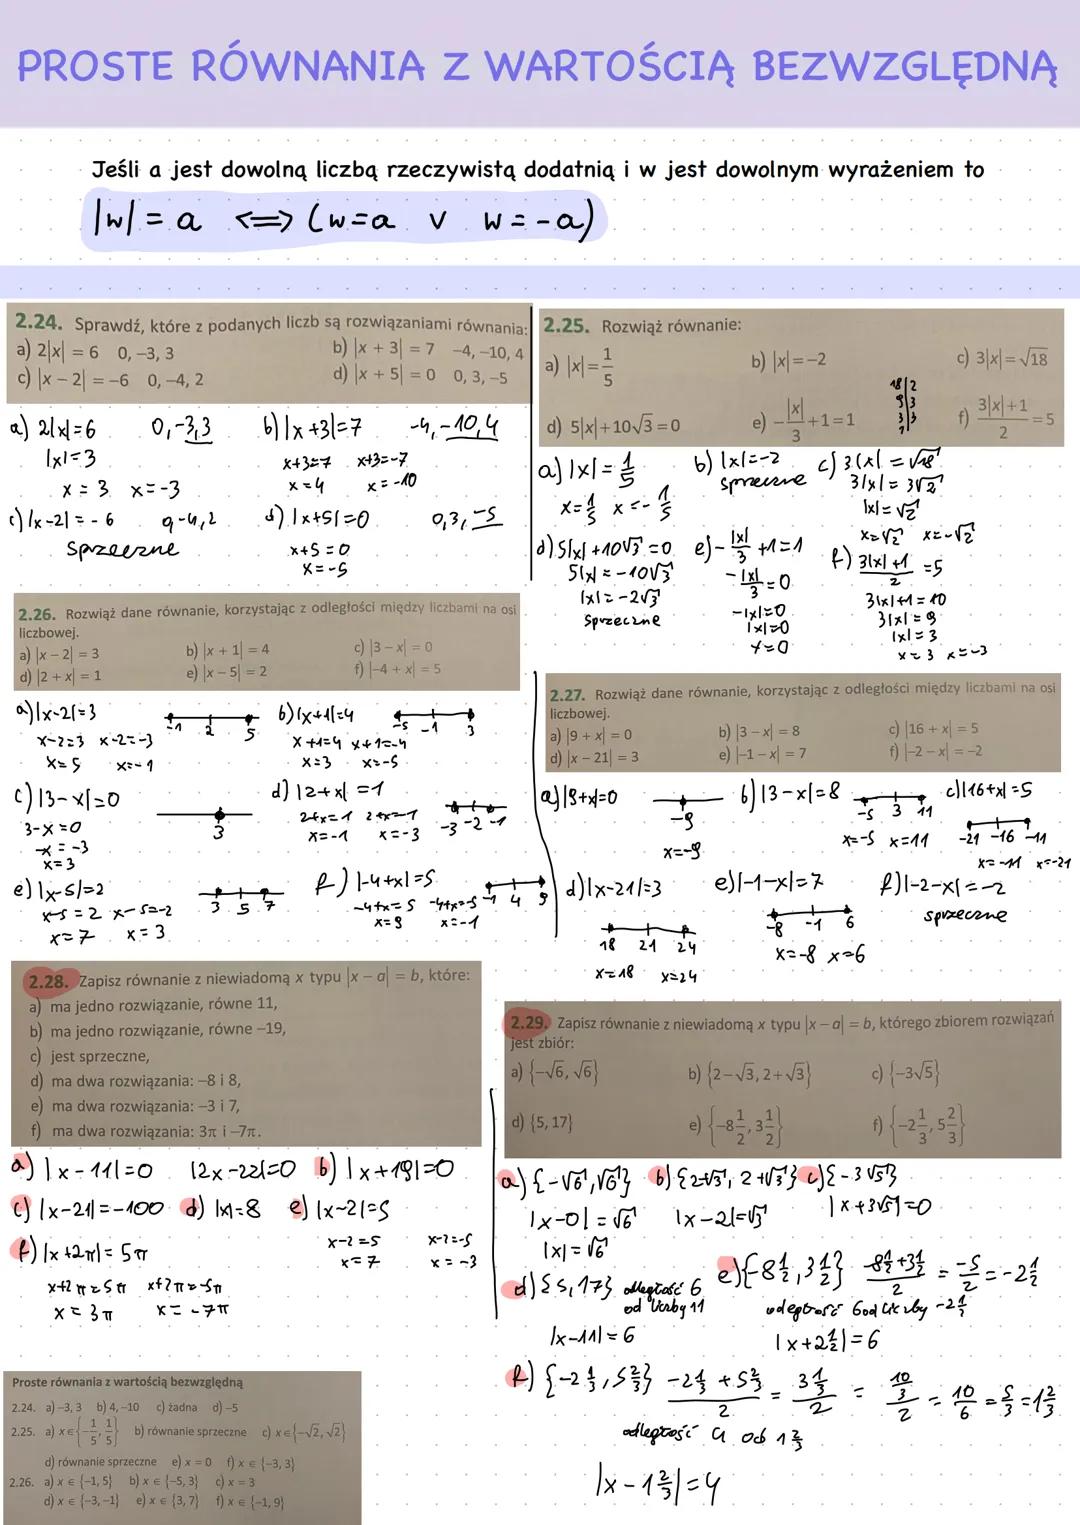 PROSTE RÓWNANIA Z WARTOŚCIĄ BEZWZGLĘDNĄ
Jeśli a jest dowolną liczbą rzeczywistą dodatnią i w jest dowolnym wyrażeniem to
|w| = a <=> (w=a v w=-a)
2.24. Sprawdź, które z podanych liczb są rozwiązaniami równania:
a) 2|x| = 6 0, –3, 3 b) |x + 3| = 7 –4, –10, 4
c) |x – 2| = –6 0, –4, 2 d) |x + 5| = 0 0, 3, –5
a) 2|x|=6 0,-3,3 b) |x+3|=7 -4,-10,4
|x|=3 x+3=7 x+3=-7
x=3 x=-3 x=4 x=-10
c) |x-2|=-6 0-4,2 d) |x+5|=0 0,3,-5
sprzeczne x+5=0
x=-5
2.25. Rozwiąż równanie:
a) |x| = 1/5 b) |x| = –2 c) 3|x| = √18
18|2
9|3
3|3
1|
d) 5|x| + 10√3 = 0 e) –|x|/3 + 1 = 1 f) (3|x| + 1)/2 = 5
a) |x|=1/5 b) |x|=-2 c) 3|x|=√18
x=1/5 x=-1/5 sprzeczne 3|x|=3√2
|x|=√2
x=√2 x=-√2
d) 5|x|+10√3=0 e) -|x|/3+1=1 f) (3|x|+1)/2=5
5|x|=-10√3 -|x|/3=0 3|x|+1=10
|x|=-2√3 -|x|=0 3|x|=9
sprzeczne |x|=0 |x|=3
x=0 x=3 x=-3
2.26. Rozwiąż dane równanie, korzystając z odległości między liczbami na osi
liczbowej.
a) |x – 2| = 3 b) |x + 1| = 4 c) |3 – x| = 0
d) |2 + x| = 1 e) |x – 5| = 2 f) |–4 + x| = 5
a) |x-2|=3 -1 2 5 b) |x+1|=4 -5 -1 3
x-2=3 x-2=-3 x+1=4 x+1=-4
x=5 x=-1 x=3 x=-5
c) |3-x|=0 3 d) |2+x|=1 -3 -2 -1
3-x=0 2+x=1 2+x=-1
-x=-3 x=-1 x=-3
x=3
e) |x-5|=2 3 5 7 f) |-4+x|=5 -1 4 9
x-5=2 x-5=-2 -4+x=5 -4+x=-5
x=7 x=3 x=9 x=-1
2.27. Rozwiąż dane równanie, korzystając z odległości między liczbami na osi
liczbowej.
a) |9 + x| = 0 b) |3 – x| = 8 c) |16 + x| = 5
d) |x – 21| = 3 e) |–1 – x| = 7 f) |–2 – x| = –2
a) |9+x|=0 -9 b) |3-x|=8 -5 3 11 c) |16+x|=5
x=-9 x=-5 x=11 -21 -16 -11
x=-11 x=-21
d) |x-21|=3 e) |-1-x|=7 f) |-2-x|=-2
18 21 24 -8 -1 6 sprzeczne
x=18 x=24 x=-8 x=6
2.28. Zapisz równanie z niewiadomą x typu |x – a| = b, które:
a) ma jedno rozwiązanie, równe 11,
b) ma jedno rozwiązanie, równe –19,
c) jest sprzeczne,
d) ma dwa rozwiązania: –8 i 8,
e) ma dwa rozwiązania: –3 i 7,
f) ma dwa rozwiązania: 3π i –7π.
a) |x-11|=0 |2x-22|=0 b) |x+19|=0
c) |x-21|=-100 d) |x|=8 e) |x-2|=5
x-2=5 x-2=-5
x=7 x=-3
f) |x+2π|=5π
x+2π=5π x+2π=-5π
x=3π x=-7π
2.29. Zapisz równanie z niewiadomą x typu |x – a| = b, którego zbiorem rozwiązań
jest zbiór:
a) {–√6, √6} b) {2 – √3, 2 + √3} c) {–3√5}
d) {5, 17} e) {–8 1/2, 3 1/2} f) {–2 1/3, 5 2/3}
a) {-√6, √6} b) {2-√3, 2+√3} c) {-3√5}
|x-0|=√6 |x-2|=√3 |x+3√5|=0
|x|=√6
d) {5,17} odległość 6
od liczby 11
|x-11|=6
e) {-8 1/2, 3 1/2} (-8 1/2 + 3 1/2)/2 = -5/2 = -2 1/2
odległość 6 od liczby -2 1/2
|x+2 1/2|=6
f) {-2 1/3, 5 2/3} (-2 1/3 + 5 2/3)/2 = (3 1/3)/2 = (10/3)/2 = 10/6 = 5/3 = 1 2/3
odległość 4 od 1 2/3
|x-1 2/3|=4
Proste równania z wartością bezwzględną
2.24. a) –3, 3 b) 4, –10 c) żadna d) –5
2.25. a) x ∈ {–1/5, 1/5} b) równanie sprzeczne c) x ∈ {–√2, √2}
d) równanie sprzeczne e) x = 0 f) x ∈ {–3, 3}
2.26. a) x ∈ {–1, 5} b) x ∈ {–5, 3} c) x = 3
d) x ∈ {–3, –1} e) x ∈ {3, 7} f) x ∈ {–1, 9}